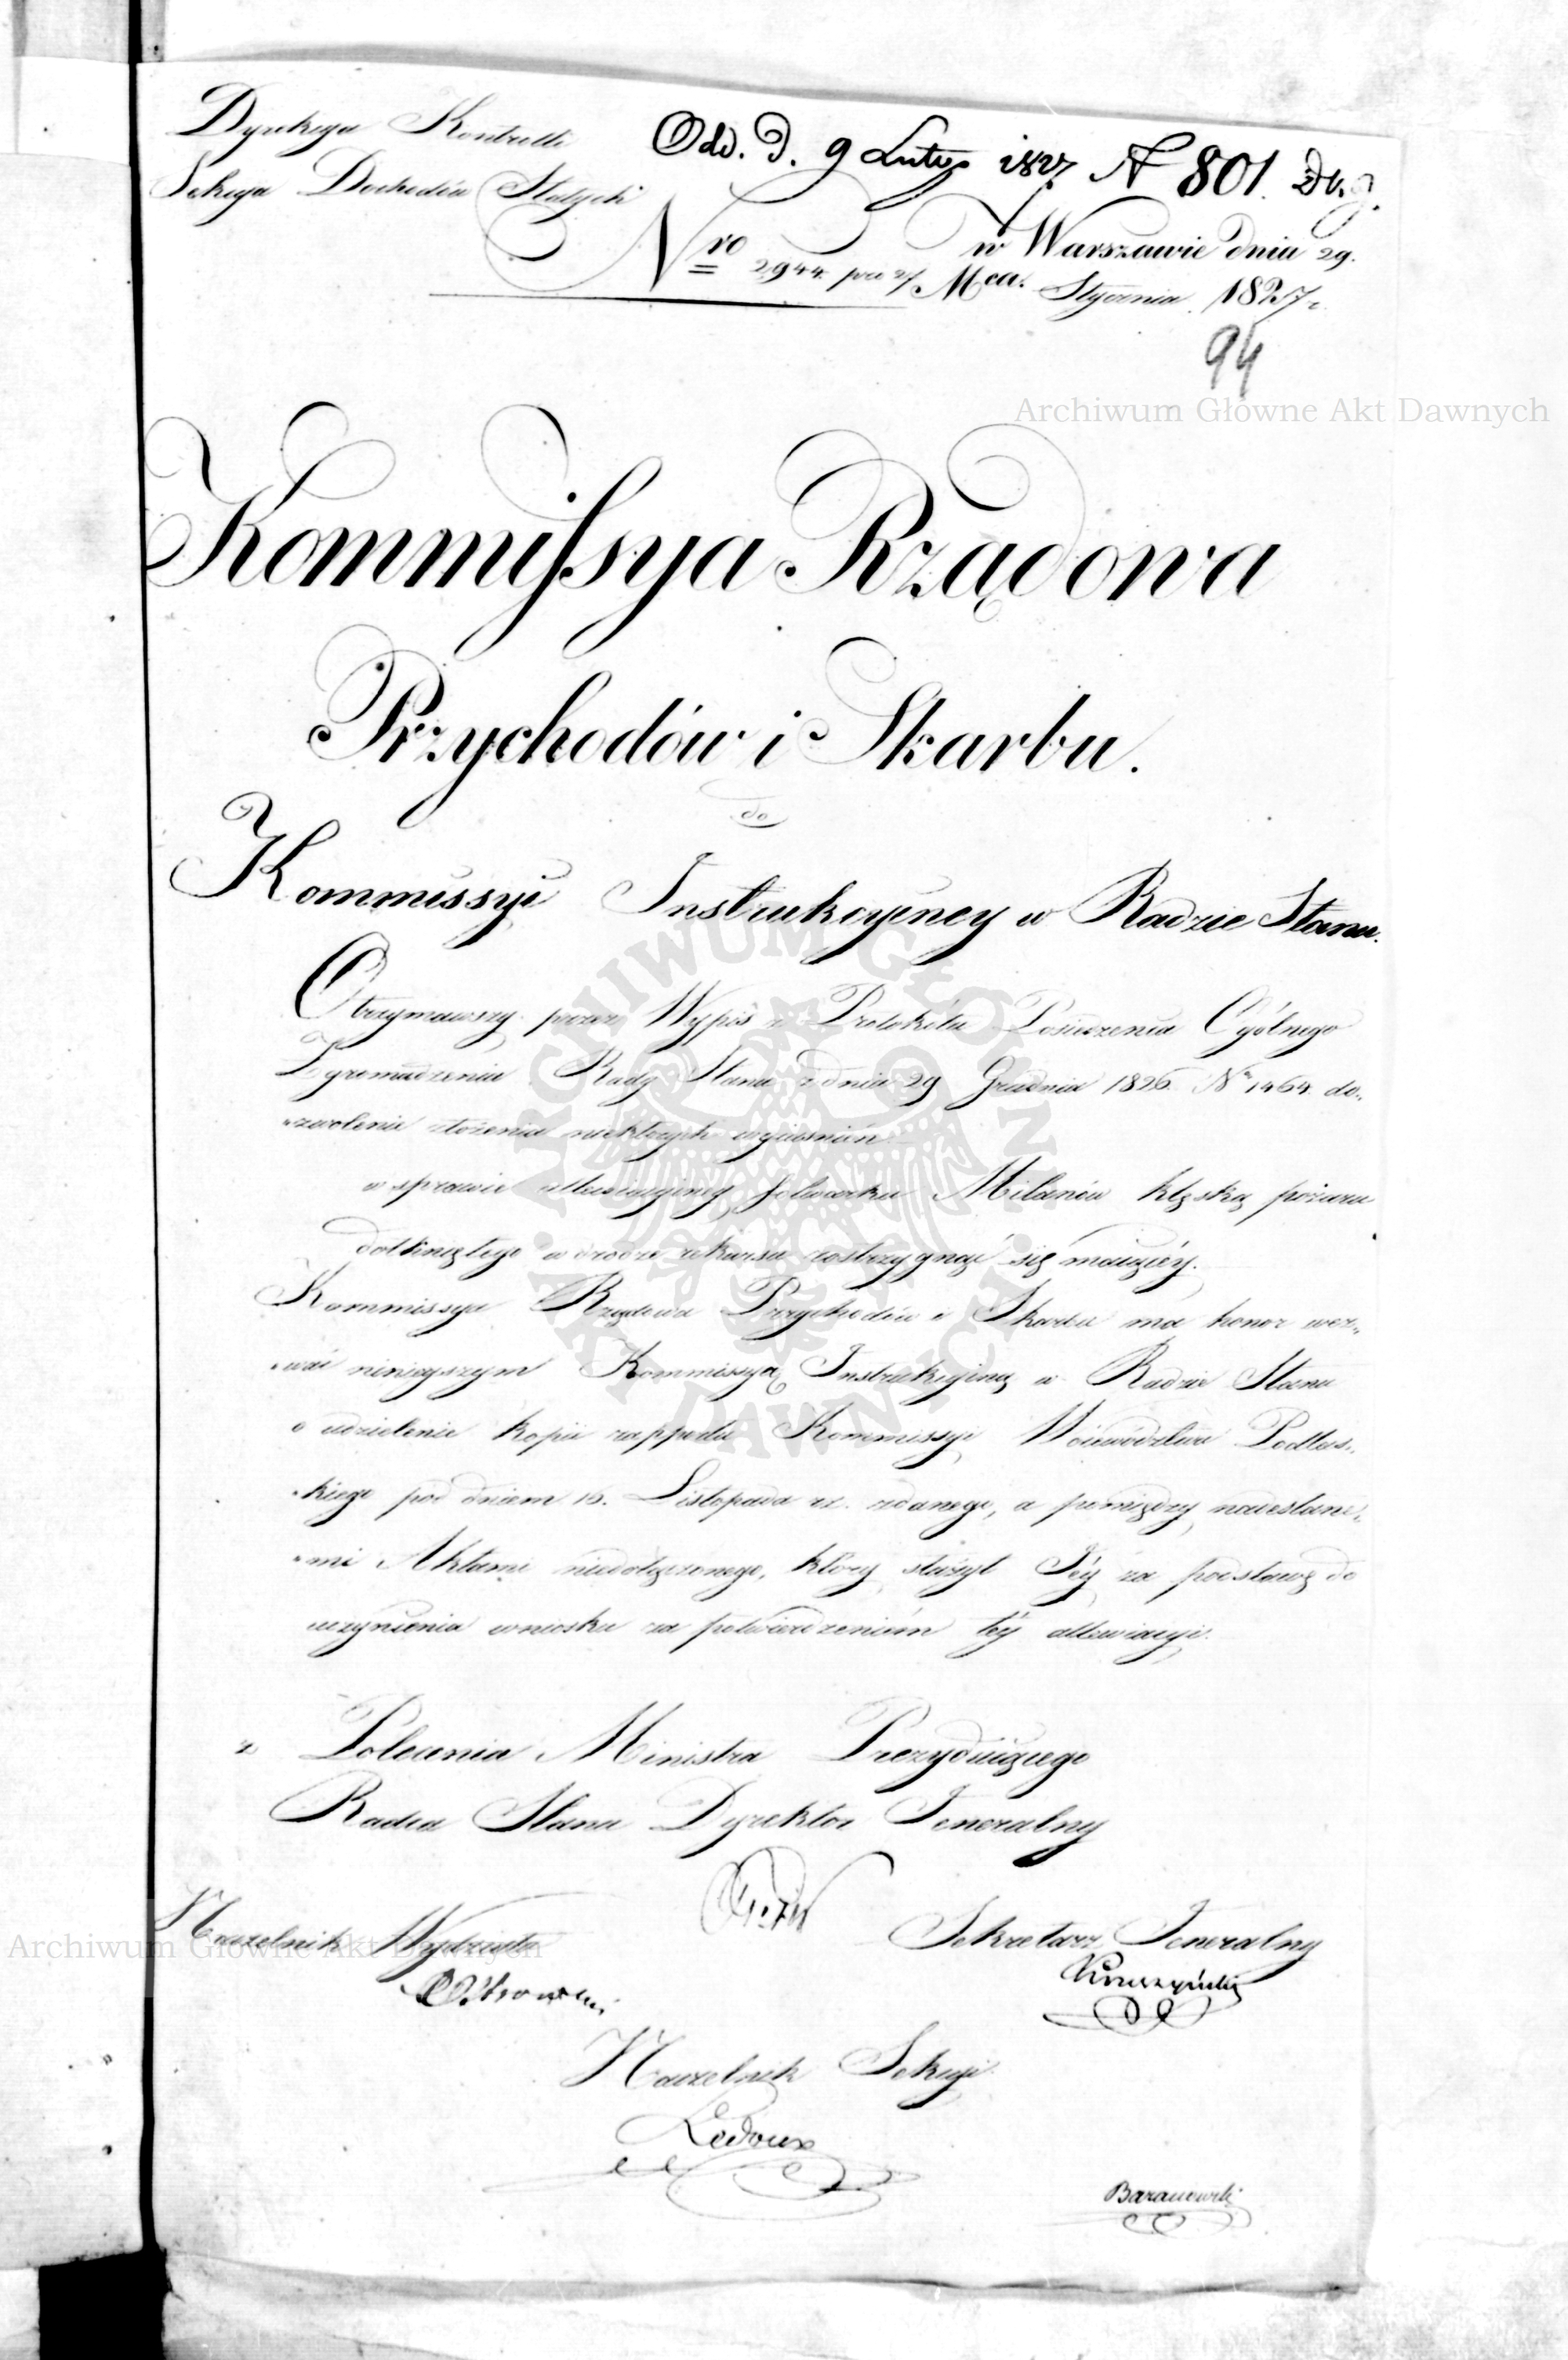 Dyrekcya Kontrolli
Sekcya Dochodów Stałych
Odd. D. 9 Lutego 1827 N 801.
Nro 2944
w Warszawie dnia 29.
Mca. Stycznia 1827 r.
94
Archiwum Główne Akt Dawnych
Kommissya Rządowa
Przychodów i Skarbu.
do
Kommissyi Instrukcyiney w Radzie Stanu.
Otrzymawszy przez Wypis z Protokółu Posiedzenia Ogólnego
Zgromadzenia Rady Stanu z dnia 29 Grudnia 1826 Nr 1464 do„
„zwolenie złożenia niektórych wyiaśnień
w sprawie allewiacyiney folwarku Milanów klęską pożaru
dotkniętego w drodze rekursu rostrzygnąć się maiącéy.
Kommissya Rządowa Przychodów i Skarbu ma honor wez„
„wać ninieyszym Kommissyą Instrukcyiną w Radzie Stanu
o udzielenie kopii rapportu Kommissyi Woiewództwa Podlas„
„kiego pod dniem 15. Listopada rz. zdanego, a pomiędzy nadesłane„
„mi Aktami niedołączonego, który służył Jéy za podstawę do
uczynienia wniosku za potwierdzeniem téy allewiacyi.
z Polecenia Ministra Prezyduiącego
Radca Stanu Dyrektor Jeneralny
Naczelnik Wydziału
Sekretarz Jeneralny
Archiwum Główne Akt Dawnych
Ostrowski
Kruszyński
Naczelnik Sekcyi
Ledoux
Baranowski
ARCHIWUM GŁÓWNE AKT DAWNYCH